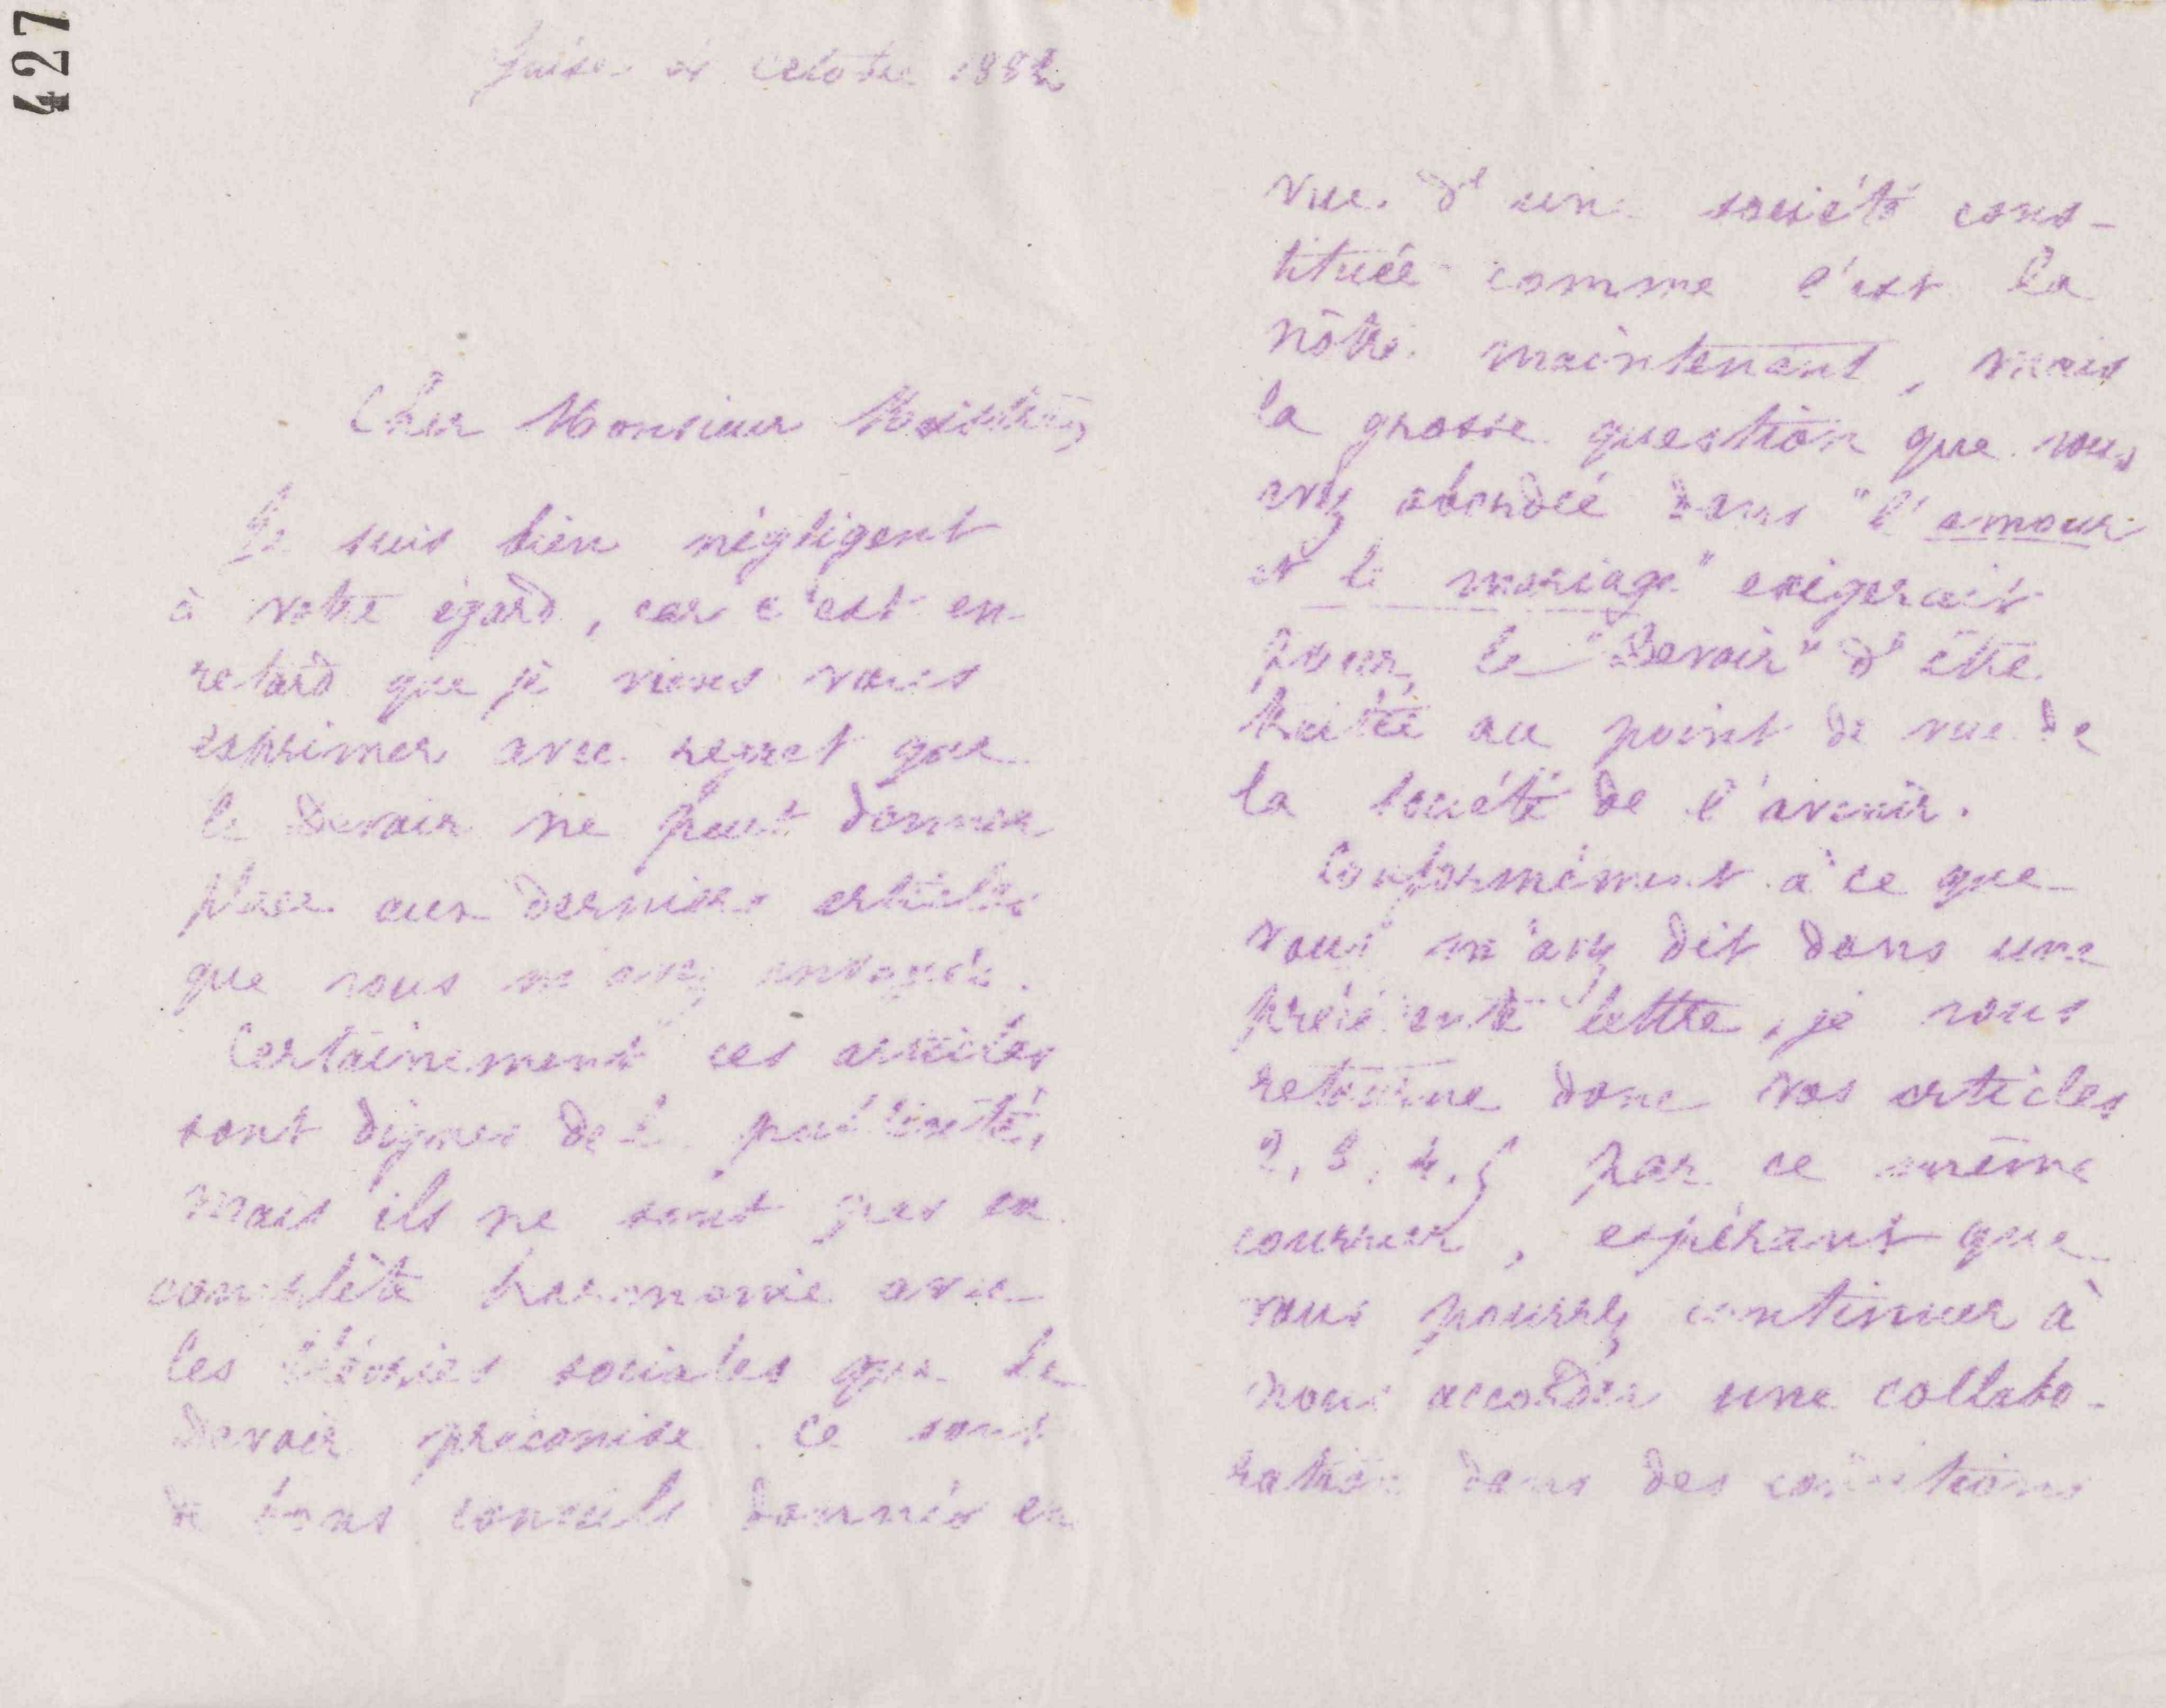 427
Guise 4 octobre 1882
Cher Monsieur
Je suis bien négligent
à votre égard, car c'est en
retard que je viens vous
exprimer avec regret que
le Devoir ne peut donner
place aux derniers articles
que vous m'avez envoyés.
Certainement ces articles
sont dignes de la publicité,
mais ils ne sont pas en
complète harmonie avec
les théories sociales que le
devoir préconise. Ce sont
de bons conseils donnés en
vue d'une société cons-
tituée comme l'est la
nôtre maintenant, mais
la grosse question que vous
avez abordée dans "l'amour
et le mariage" exigerait
pour le "Devoir" d'être
traitée au point de vue de
la société de l'avenir.
Conformément à ce que
vous m'avez dit dans une
précédente lettre, je vous
retourne donc vos articles
2, 3, 4, 5 par ce même
courrier, espérant que
vous pourrez continuer à
nous accorder une collabo-
ration dans des conditions